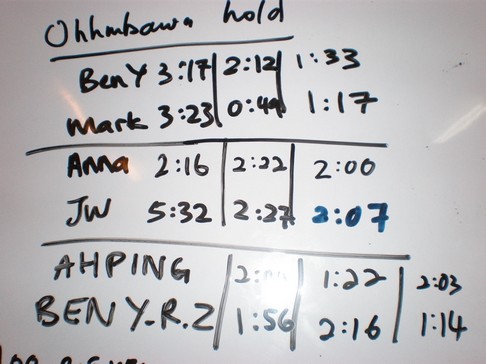 Ohhmbawa hold
Ben Y 3:17 2:12 1:33
Mark 3:23 0:49 1:17
Anna 2:16 2:22 2:00
JW 5:32 2:27 2:07
AHPING 1:22 2:03
BEN Y.R.Z 1:56 2:16 1:14